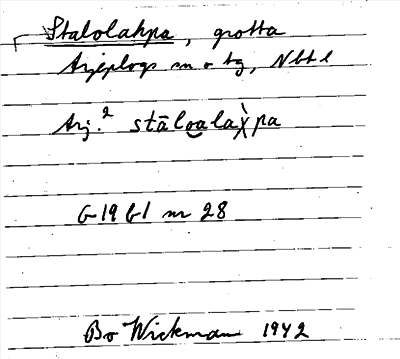 Stalolahpa, grotta
Arjeplogs sn o tg, Nbt l
Arj.² stāloalaχ̀pa
G 19 bl nr 28
Bo Wickman 1942